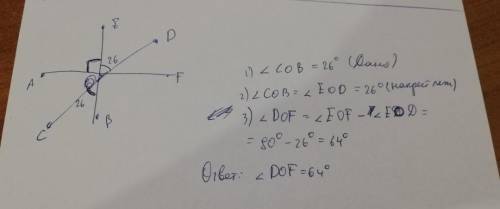 E
D
26
A
O
F
26
C
B
1) ∠COB = 26° (Дано)
2) ∠COB = ∠EOD = 26° (накрест леж)
3) ∠DOF = ∠EOF - ∠EOD =
= 90° - 26° = 64°
Ответ: ∠DOF = 64°